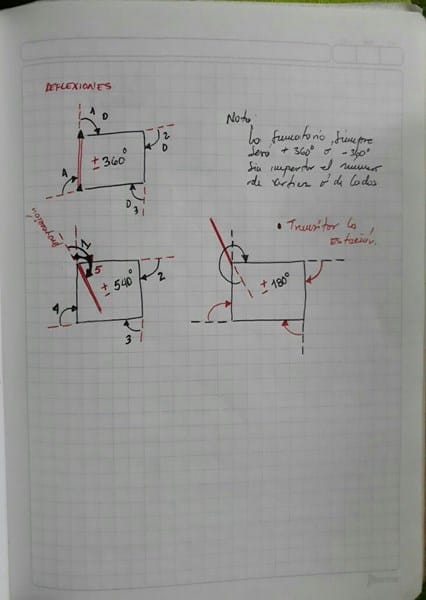 DEFLEXIONES
1 D
2
D
± 360°
D
3
Nota:
La sumatoria, siempre
será + 360° o -360°
sin importar el numero
de vertices o de lados
• Transitar la
estación.
5
± 540°
2
4
3
± 180°